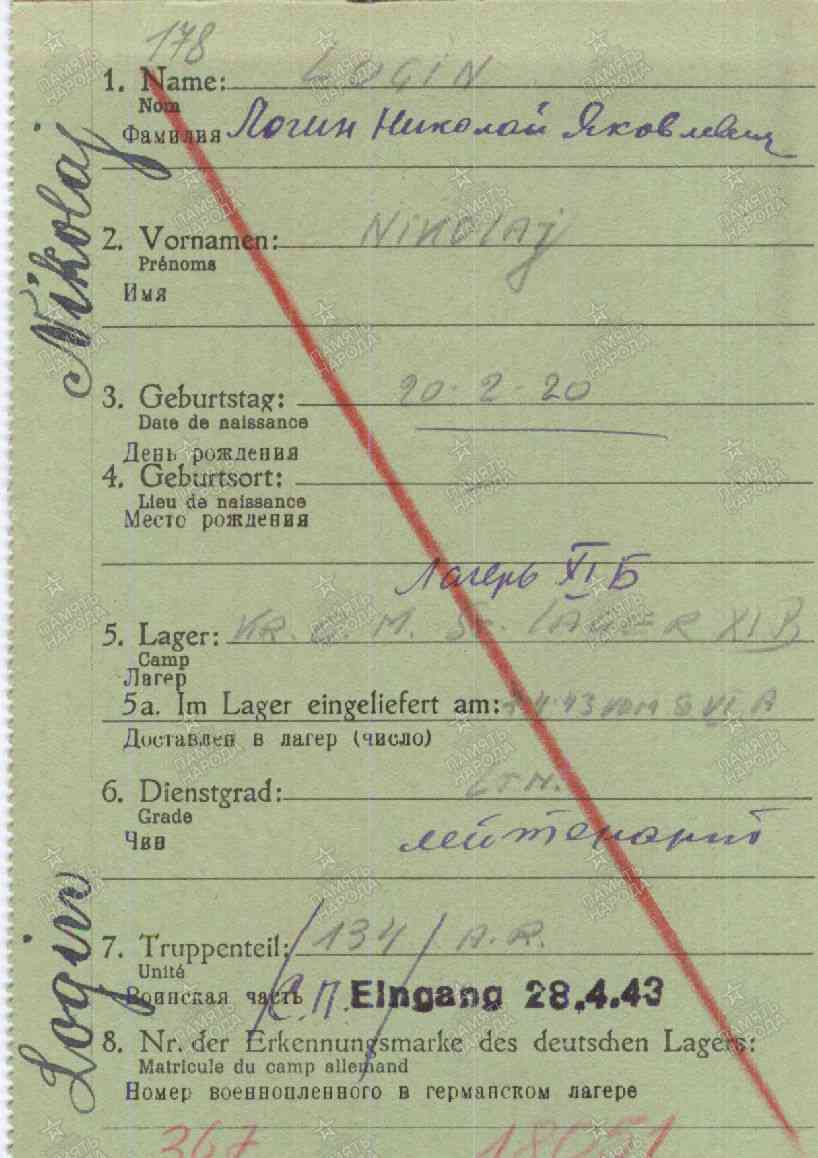 178
1. Name: LOGIN
Nom
Фамилия Логин Николай Яковлевич
2. Vornamen: NIKOLAJ
Prénoms
Имя
3. Geburtstag: 20-2-20
Date de naissance
День рождения
4. Geburtsort: -
Lieu de naissance
Место рождения
Лагерь XI Б
5. Lager: KR. G. M. ST. LAGER XI B
Camp
Лагер
5a. Im Lager eingeliefert am: 4.43 vom VI A
Доставлен в лагер (число)
6. Dienstgrad: LTN.
Grade
Чин
лейтенант
7. Truppenteil: /134/ A.R.
Unité
Воинская часть С.П. Eingang 28.4.43
8. Nr. der Erkennungsmarke des deutschen Lagers:
Matricule du camp allemand
Номер военнопленного в германском лагере
367 18051
Login Nikolaj
ПАМЯТЬ НАРОДА